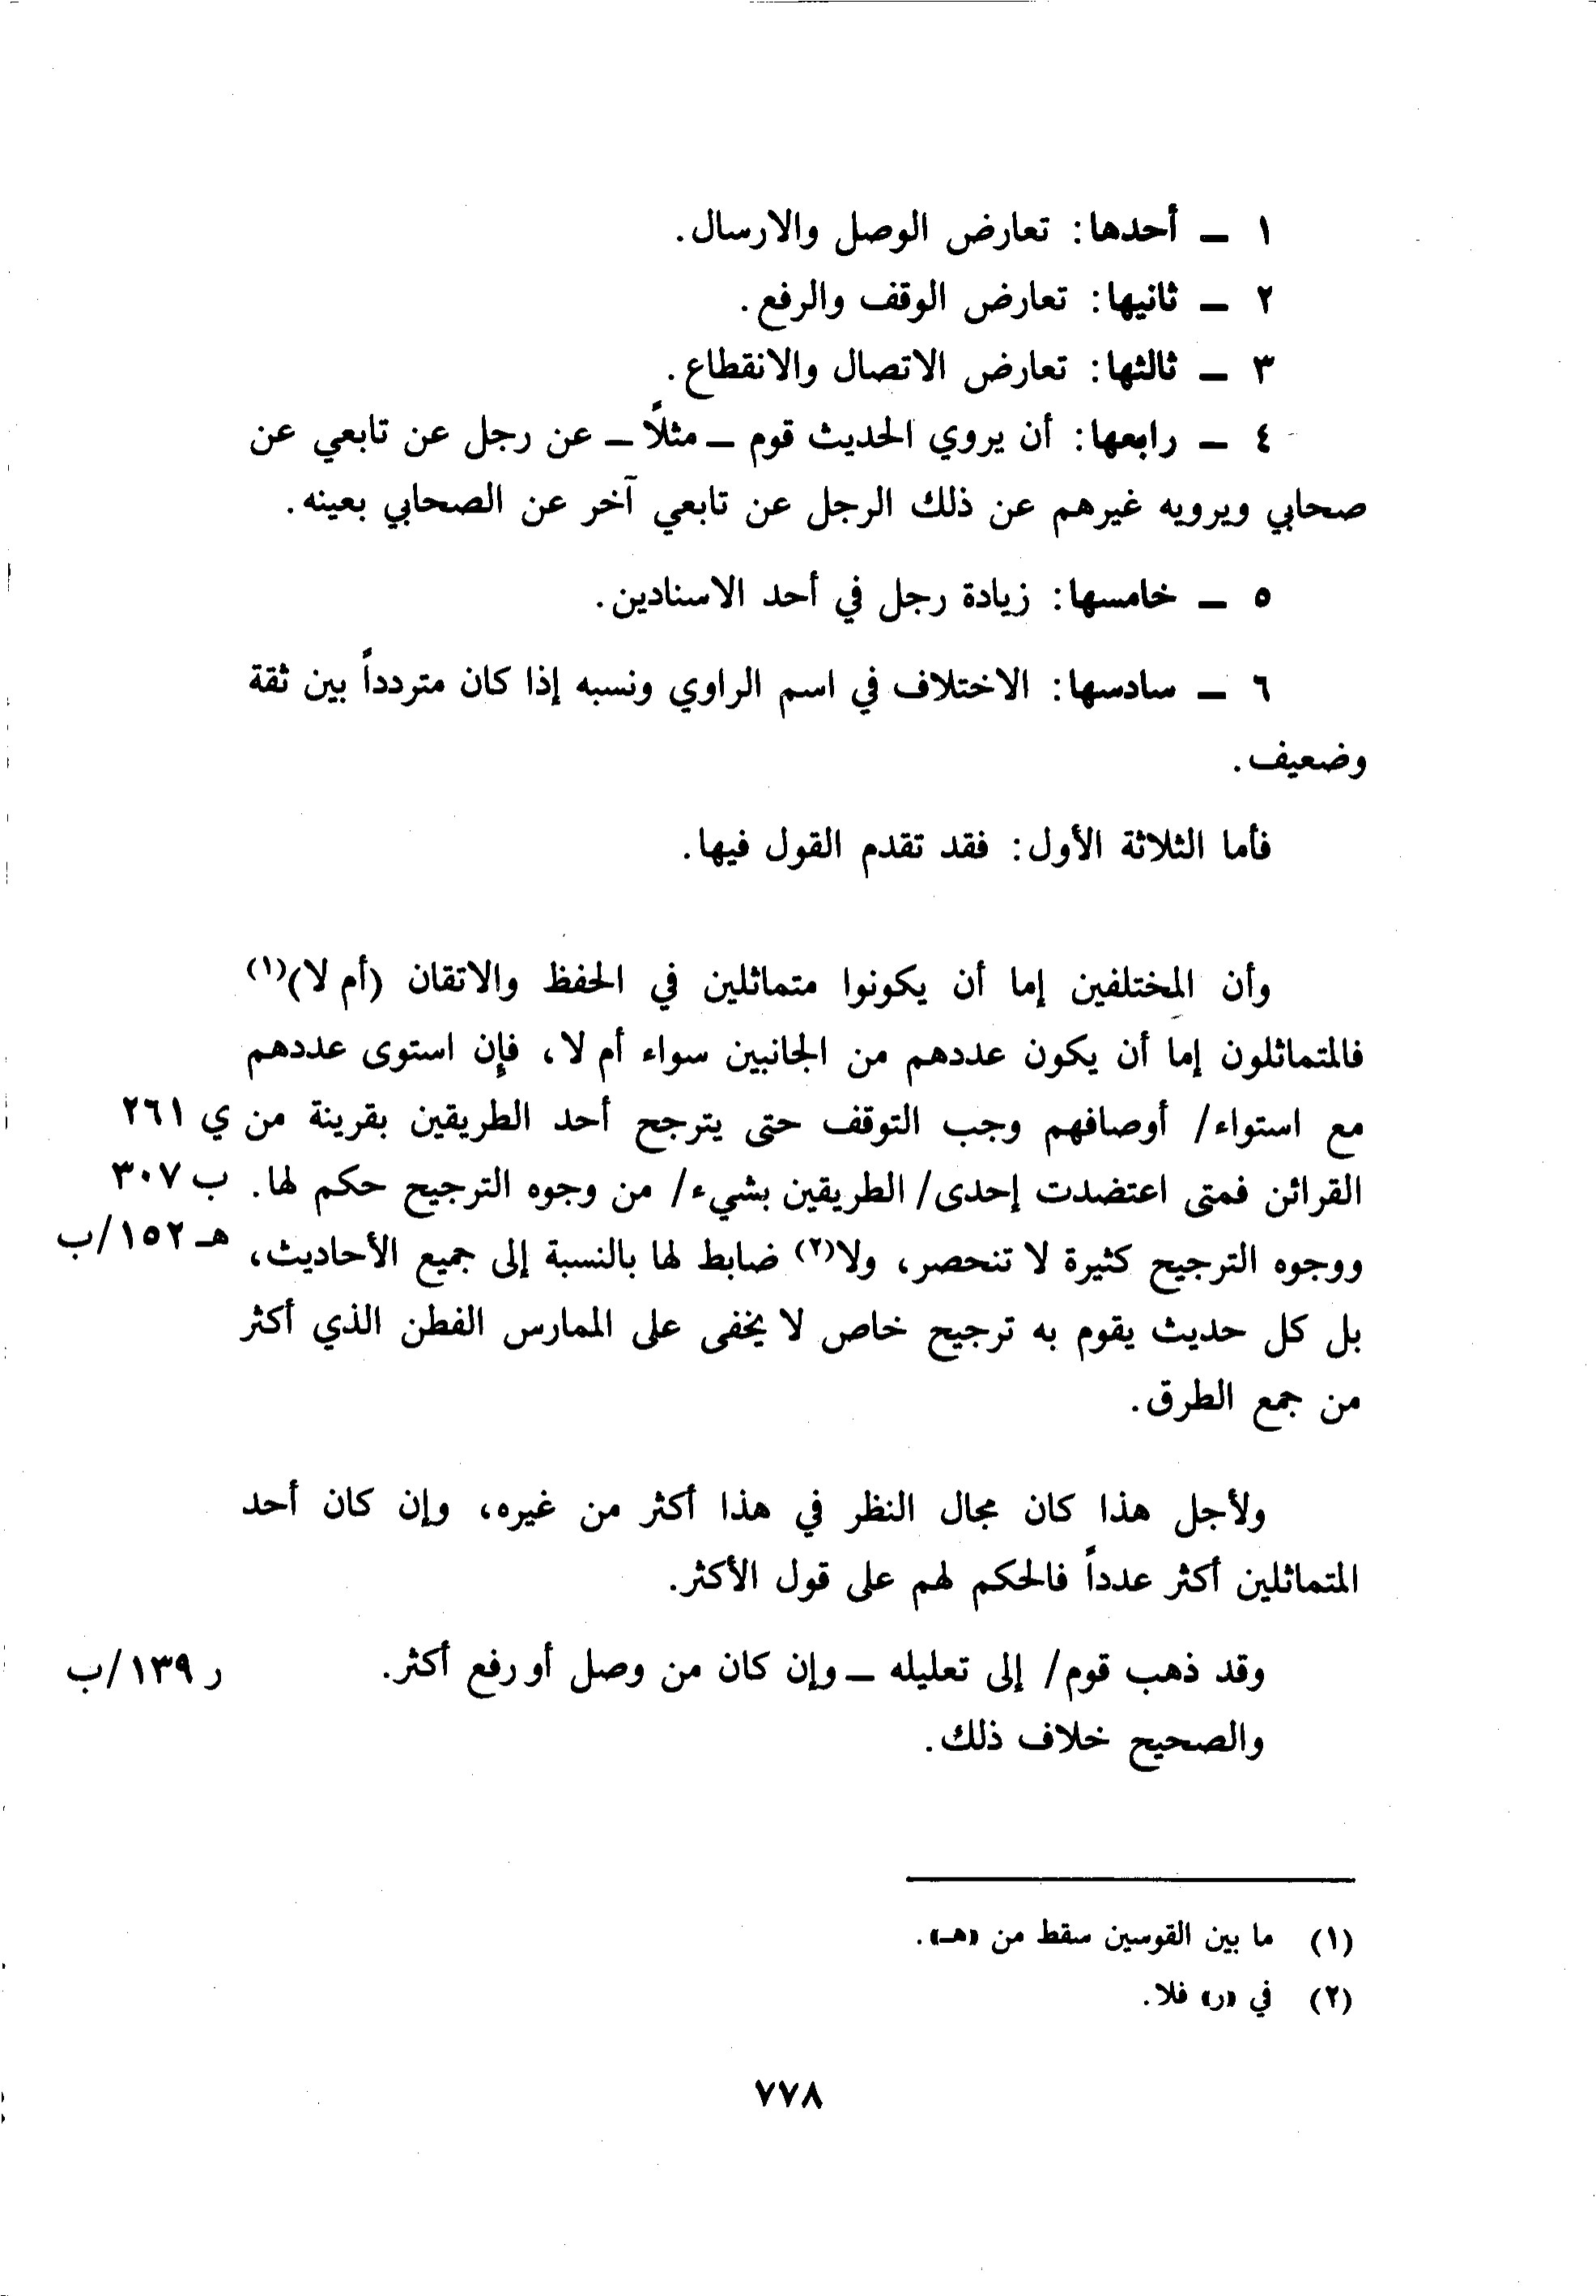 ١ ــ أحدها: تعارض الوصل والارسال.
٢ ــ ثانيها: تعارض الوقف والرفع.
٣ ــ ثالثها: تعارض الاتصال والانقطاع.
٤ ــ رابعها: أن يروي الحديث قوم ــ مثلاً ــ عن رجل عن تابعي عن
صحابي ويرويه غيرهم عن ذلك الرجل عن تابعي آخر عن الصحابي بعينه.
٥ ــ خامسها: زيادة رجل في أحد الاسنادين.
٦ ــ سادسها: الاختلاف في اسم الراوي ونسبه إذا كان متردداً بين ثقة
وضعيف.
فأما الثلاثة الأول: فقد تقدم القول فيها.
وأن المختلفين إما أن يكونوا متماثلين في الحفظ والاتقان (أم لا)(١)
فالمتماثلون إما أن يكون عددهم من الجانبين سواء أم لا، فإن استوى عددهم
مع استواء/ أوصافهم وجب التوقف حتى يترجح أحد الطريقين بقرينة من ي ٢٦١
القرائن فمتى اعتضدت إحدى/ الطريقين بشيء/ من وجوه الترجيح حكم لها. ب ٣٠٧
ووجوه الترجيح كثيرة لا تنحصر، ولا(٢) ضابط لها بالنسبة إلى جميع الأحاديث، هـ ١٥٢/ب
بل كل حديث يقوم به ترجيح خاص لا يخفى على الممارس الفطن الذي أكثر
من جمع الطرق.
ولأجل هذا كان مجال النظر في هذا أكثر من غيره، وإن كان أحد
المتماثلين أكثر عدداً فالحكم لهم على قول الأكثر.
وقد ذهب قوم/ إلى تعليله ــ وإن كان من وصل أو رفع أكثر. ر ١٣٩/ب
والصحيح خلاف ذلك.
(١) ما بين القوسين سقط من «هـ».
(٢) في «ر» فلا.
٧٧٨